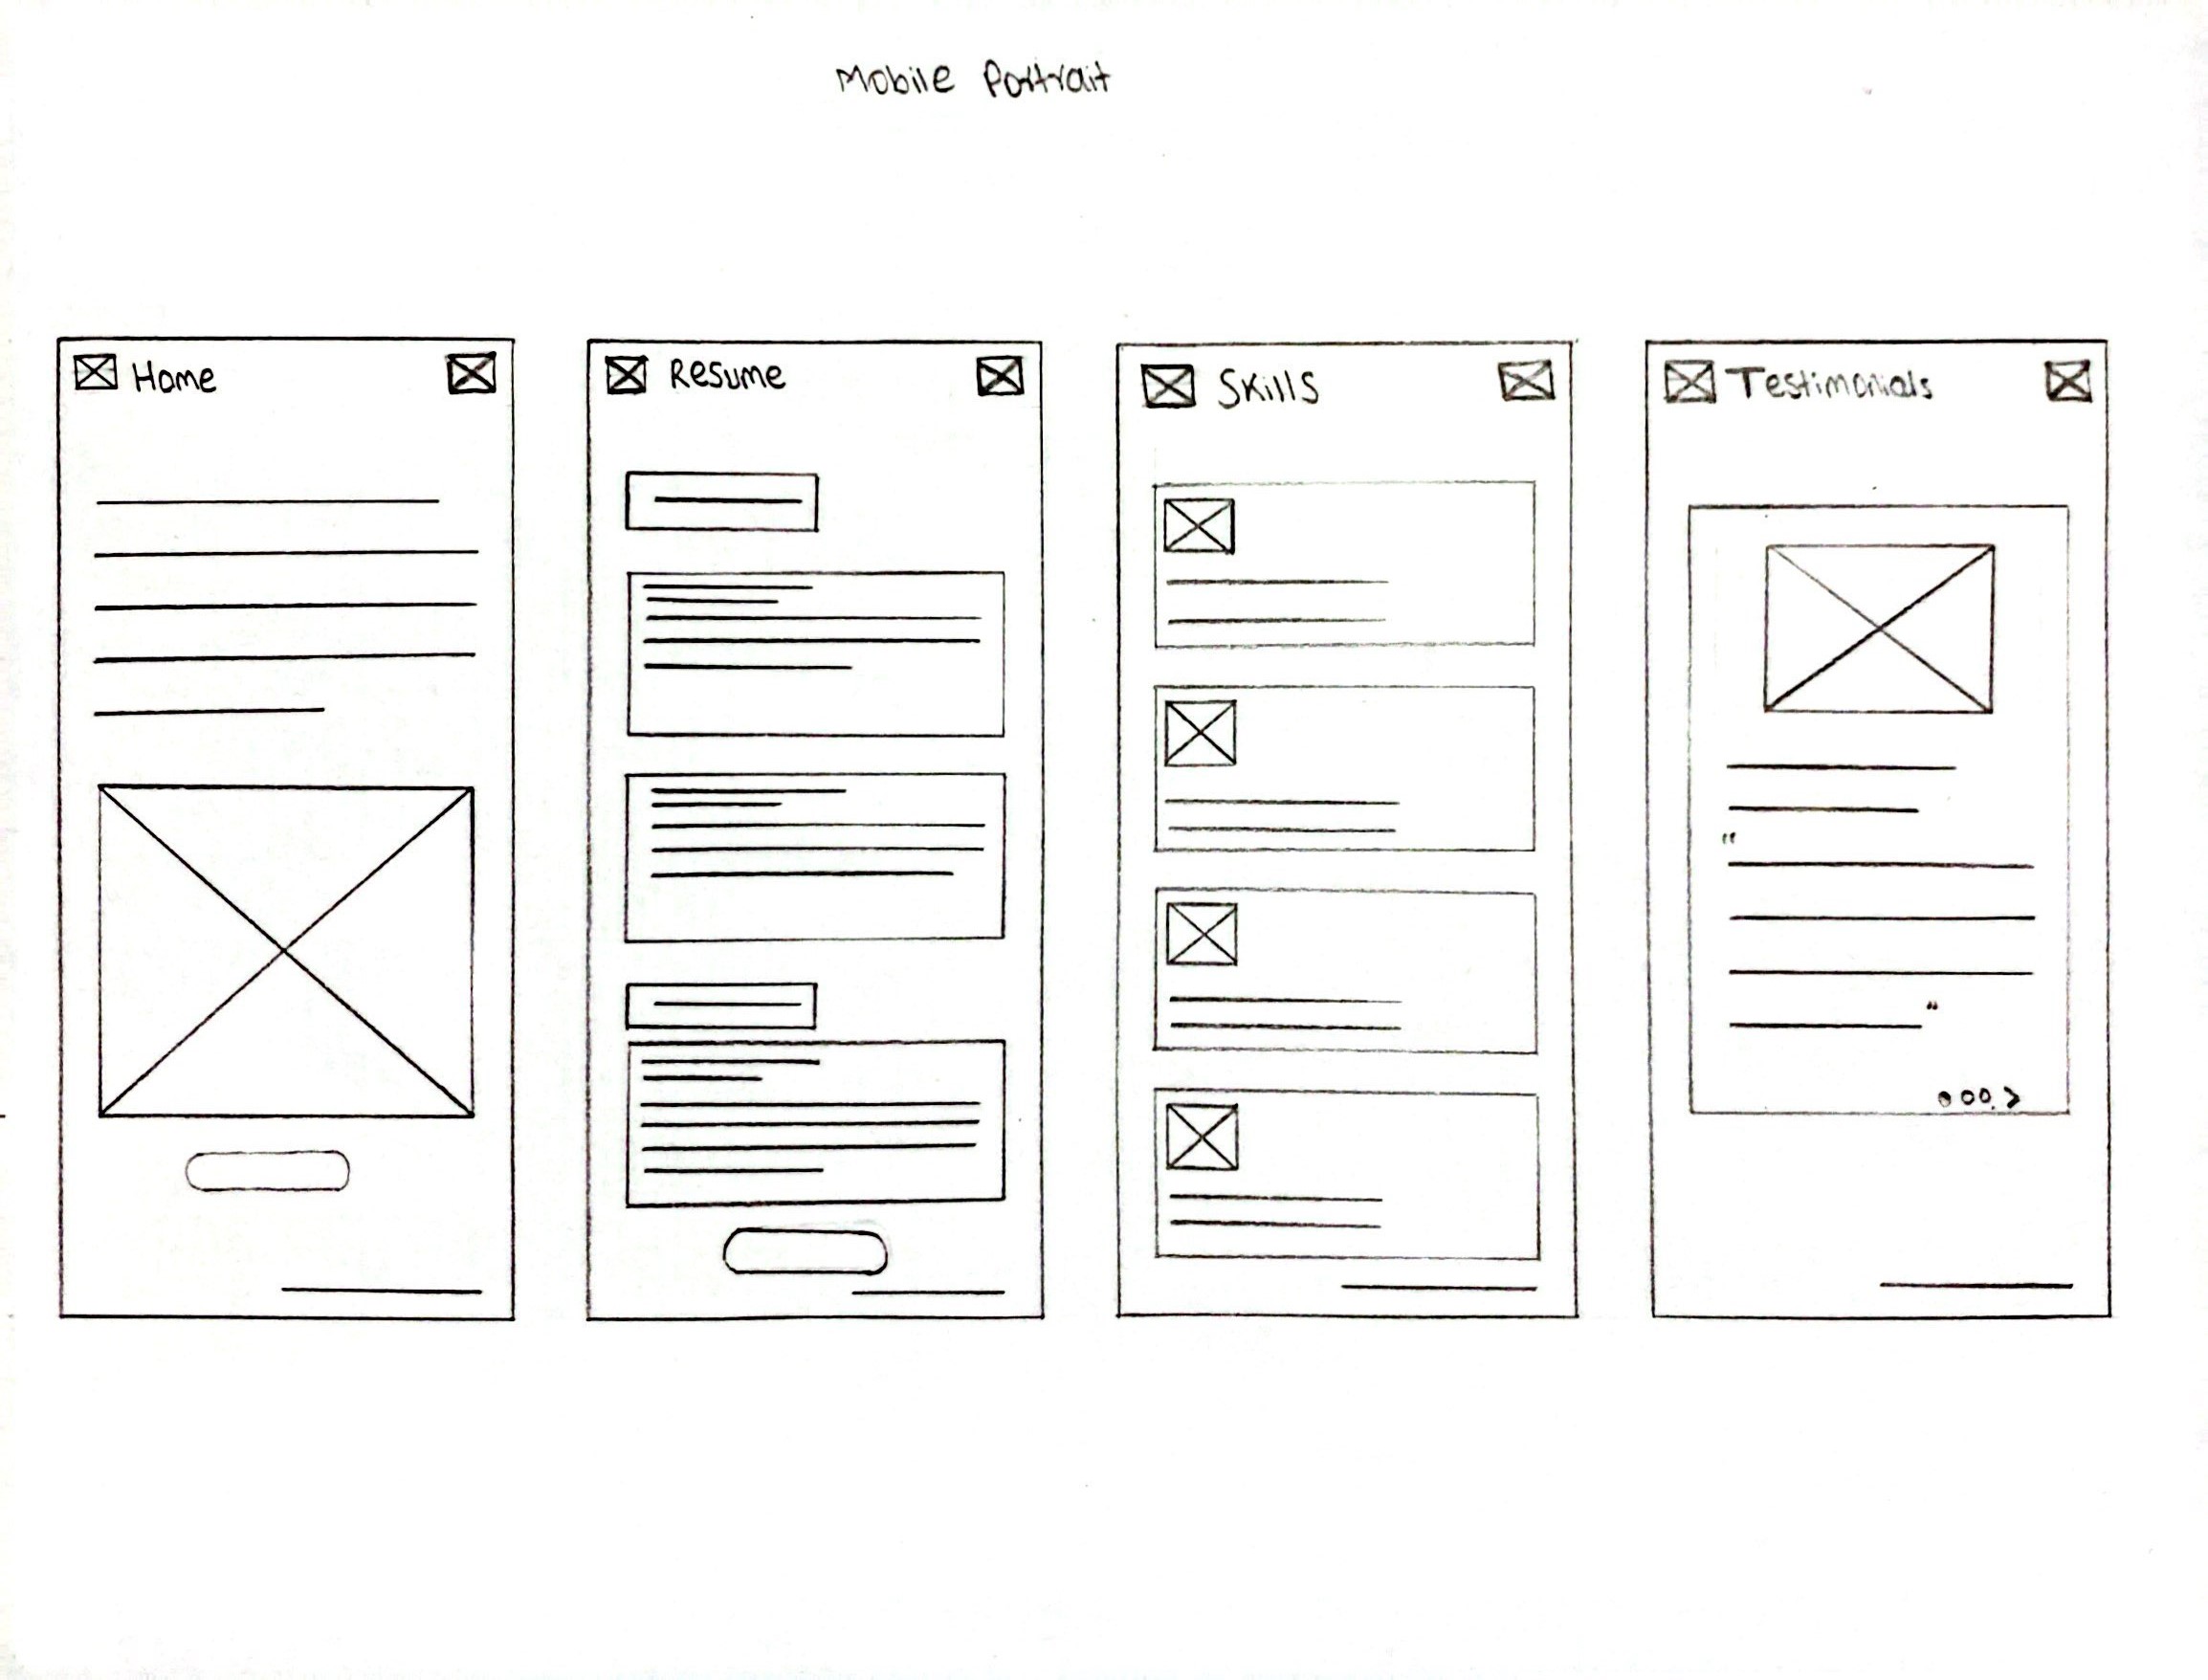 Mobile Portrait
Home
Resume
Skills
Testimonials
"
"